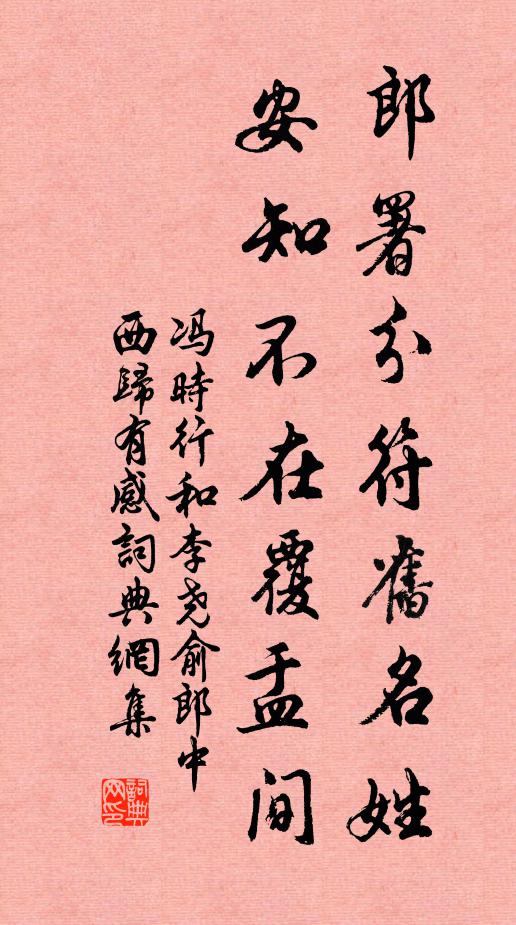 郎署分符舊名姓
安知不在覆盂間
冯時行和李尧俞郎中
西歸有感詞典網集
詞典網印